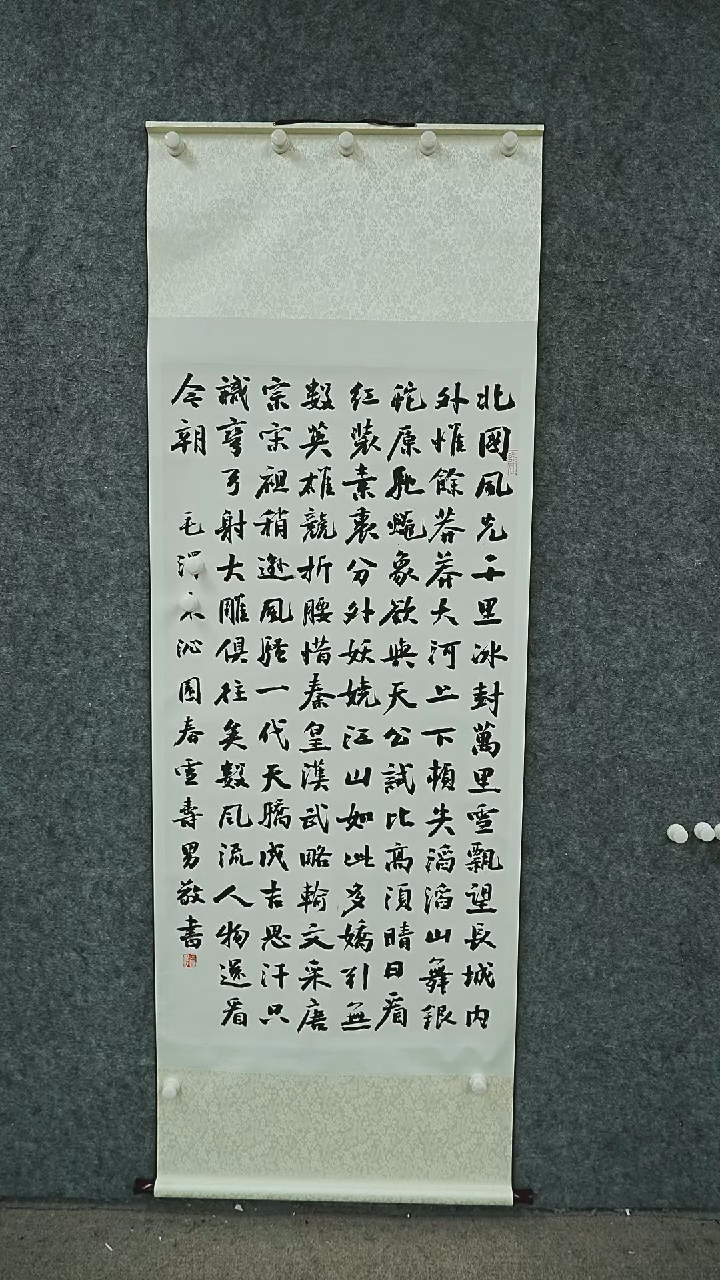 北國風光千里冰封萬里雪飄望長城内
外惟餘莽莽大河上下頓失滔滔山舞銀
蛇原馳蠟象欲與天公試比高須晴日看
紅裝素裹分外妖嬈江山如此多嬌引無
數英雄競折腰惜秦皇漢武略輸文采唐
宗宋祖稍遜風騷一代天驕成吉思汗只
識彎弓射大雕俱往矣數風流人物還看
今朝 毛澤東沁園春雪壽男敬書